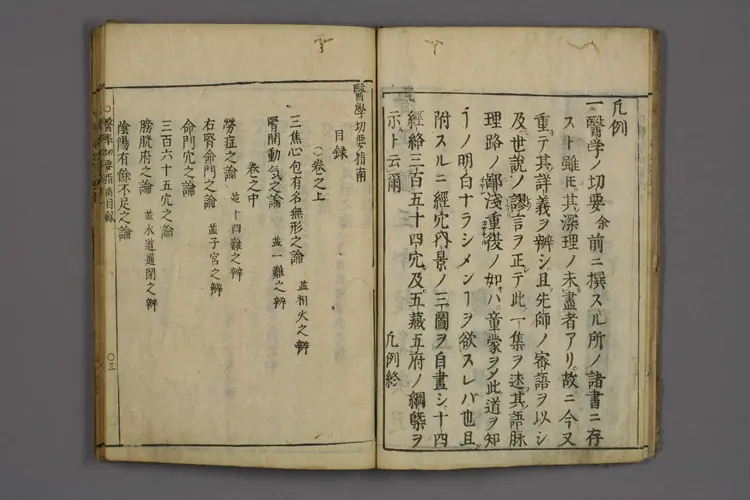 凡例
一醫学ノ切要余前ニ撰スル所ノ諸書ニ存
スト雖𪜈其深理ノ未盡者アリ故ニ今又
重テ其詳義ヲ辨シ且先師ノ密語ヲ以シ
及世説ノ謬言ヲ正テ此一集ヲ述其語脉
理路ノ鄙淺重複ノ如バ童蒙ヲ〆此道ヲ知
ヿノ明白ナラシメンヿヲ欲スレバ也且
附スルニ經穴内景ノ三圖ヲ自畫シ十四
經絡三百五十四穴及五藏五府ノ綱槩ヲ
示ト云爾
凡例終
醫學切要指南
目録
○卷之上
三焦心包有名無形之論 並相火之辨
腎間動気之論 並一難之辨
卷之中
勞症之論 並十四難之辨
右腎命門之論 並子宮之辨
命門穴之論
三百六十五穴之論
膀胱府之論 並水道通閉之辨
陰陽有餘不足之論
○醫學切要指南目録
○三